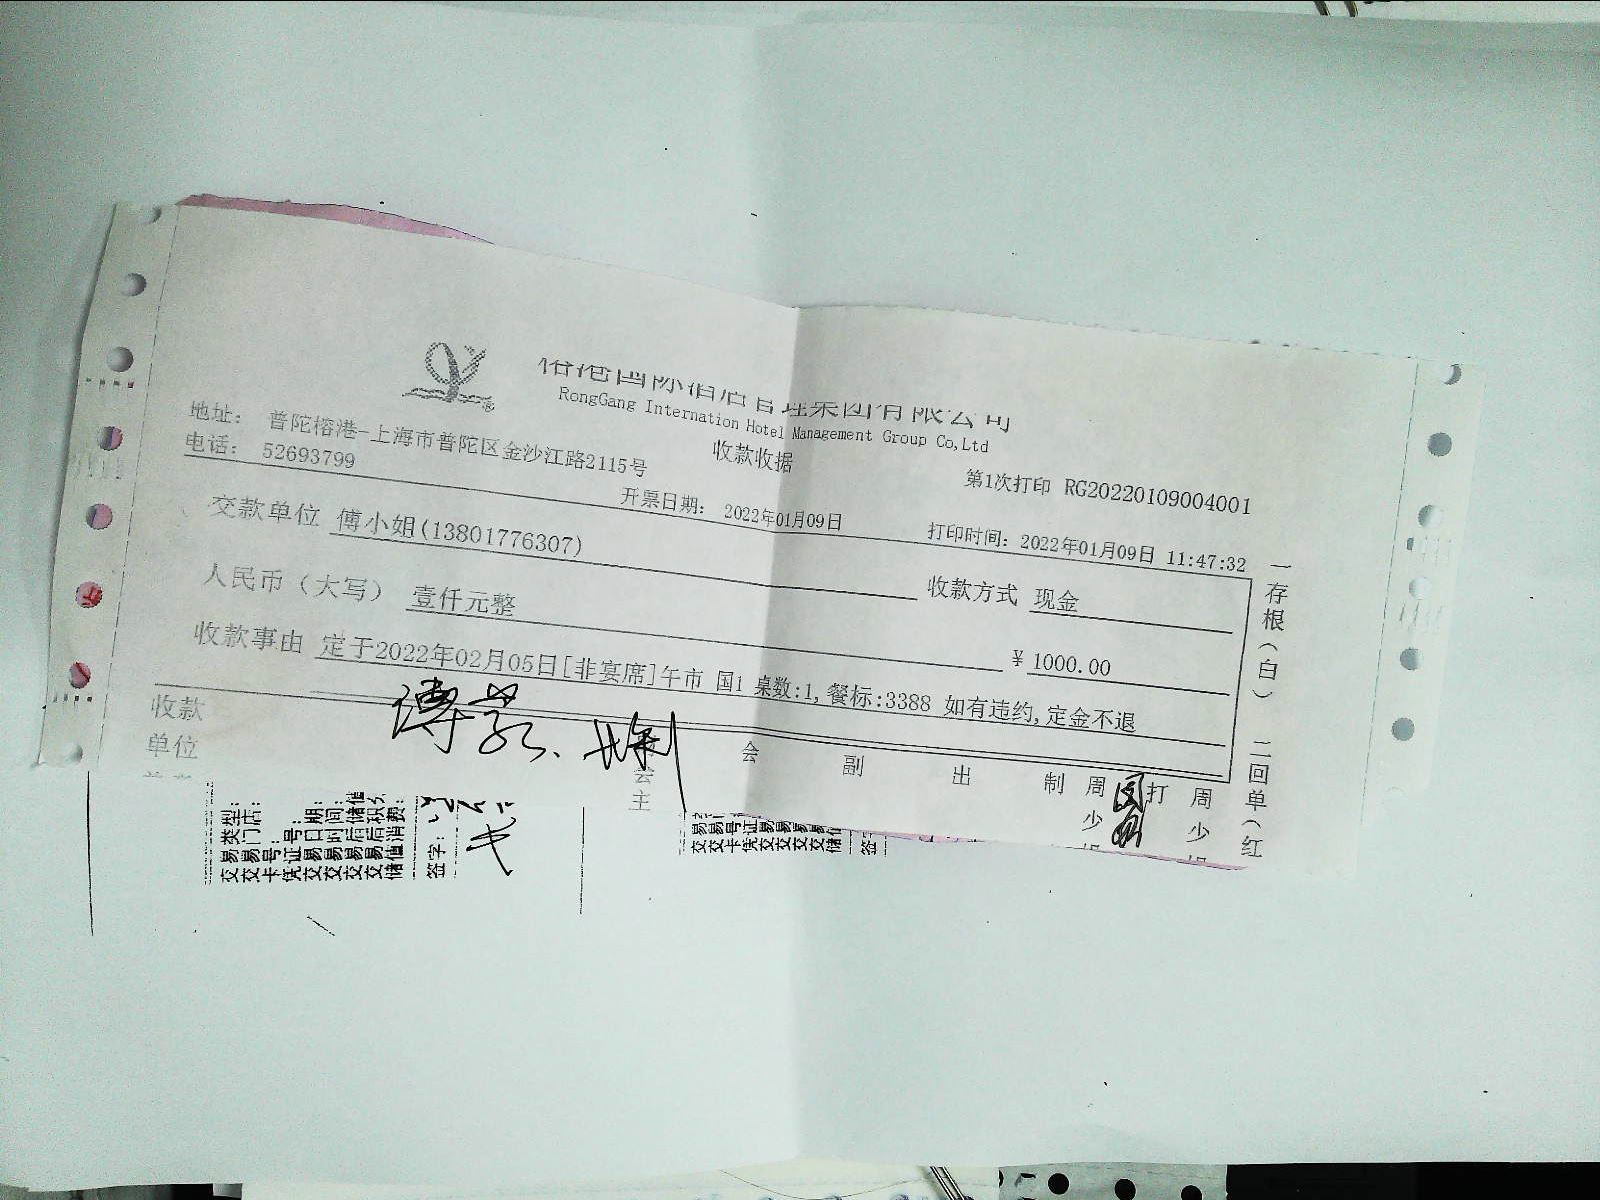 榕港国际酒店管理集团有限公司
RongGang Internation Hotel Management Group Co,Ltd
收款收据
地址： 普陀榕港-上海市普陀区金沙江路2115号
第1次打印 RG20220109004001
电话： 52693799
开票日期： 2022年01月09日
打印时间：2022年01月09日 11:47:32
交款单位 傅小姐(13801776307)
收款方式 现金
人民币（大写） 壹仟元整
￥1000.00
收款事由 定于2022年02月05日[非宴席]午市 国1 桌数:1,餐标:3388 如有违约,定金不退
收款
单位
会主
会
副
出
制
周少
打
周少
一存根（白） 二回单（红
交易类型：
交易门店：
卡号：
凭证号：
交易日期：
交易时间：
签字：
签字